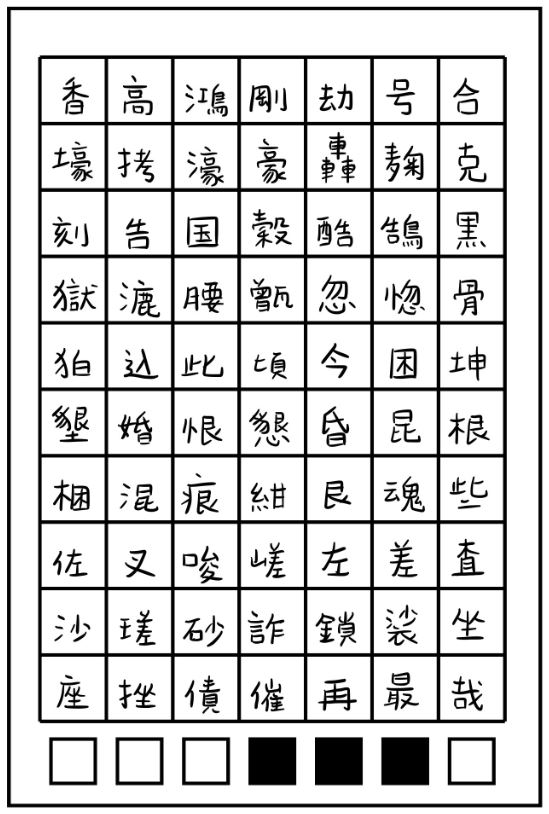 香高鴻剛劫号合
壕拷濠豪轟麹克
刻告国穀酷鵠黒
獄漉腰甑忽惚骨
狛込此頃今困坤
墾婚恨懇昏昆根
梱混痕紺艮魂些
佐叉唆嵯左差査
沙瑳砂詐鎖裟坐
座挫債催再最哉